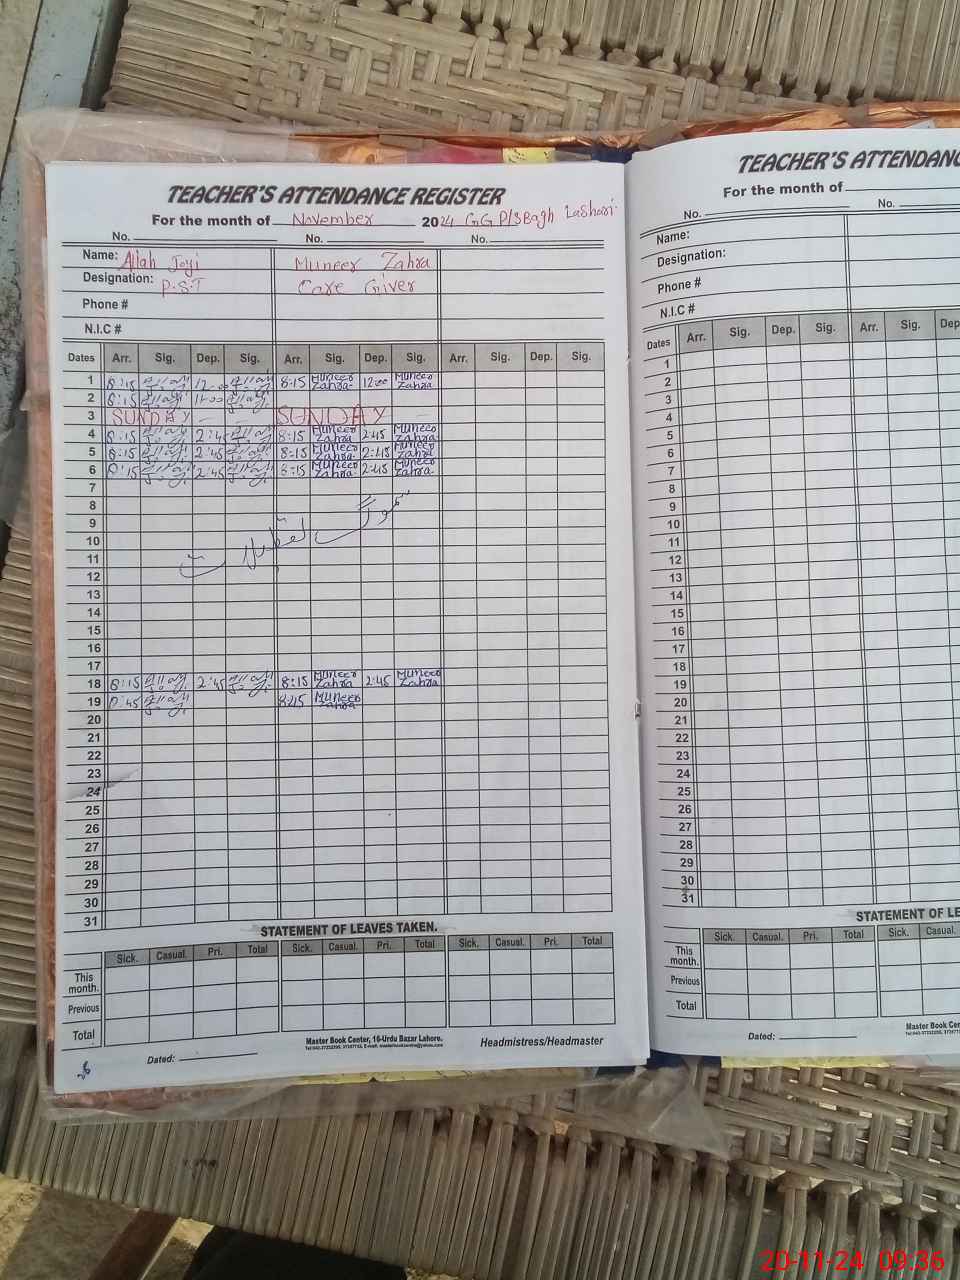 TEACHER'S ATTENDANCE REGISTER
For the month of November 2024 G.G.P/S Bagh Lashari.
No. No. No.
Name: Allah Joyi Muneer Zahra
Designation: P.S.T Care Giver
Phone #
N.I.C #
Dates Arr. Sig. Dep. Sig. Arr. Sig. Dep. Sig. Arr. Sig. Dep. Sig.
1 8:15 12:00 8:15 Muneer Zahra 12:00 Muneer Zahra
2 8:15 11:00
3 SUNDAY SUNDAY
4 8:15 2:45 8:15 Muneer Zahra 2:45 Muneer Zahra
5 8:15 2:45 8:15 Muneer Zahra 2:45 Muneer Zahra
6 8:15 2:45 8:15 Muneer Zahra 2:45 Muneer Zahra
7
8
9
سموگ تعطیلات
10
11
12
13
14
15
16
17
18 8:15 2:45 8:15 Muneer Zahra 2:45 Muneer Zahra
19 8:45 8:45 Muneer Zahra
20
21
22
23
24
25
26
27
28
29
30
31
STATEMENT OF LEAVES TAKEN.
Sick. Casual. Pri. Total Sick. Casual. Pri. Total Sick. Casual. Pri. Total
This month.
Previous
Total
Dated:
Master Book Center, 16-Urdu Bazar Lahore.
Headmistress/Headmaster
TEACHER'S ATTENDANC
For the month of
No. No.
Name:
Designation:
Phone #
N.I.C #
Dates Arr. Sig. Dep. Sig. Arr. Sig. Dep
1
2
3
4
5
6
7
8
9
10
11
12
13
14
15
16
17
18
19
20
21
22
23
24
25
26
27
28
29
30
31
STATEMENT OF LE
Sick. Casual. Pri. Total Sick. Casual.
This month.
Previous
Total
Dated:
Master Book Cent
20-11-24 09:36